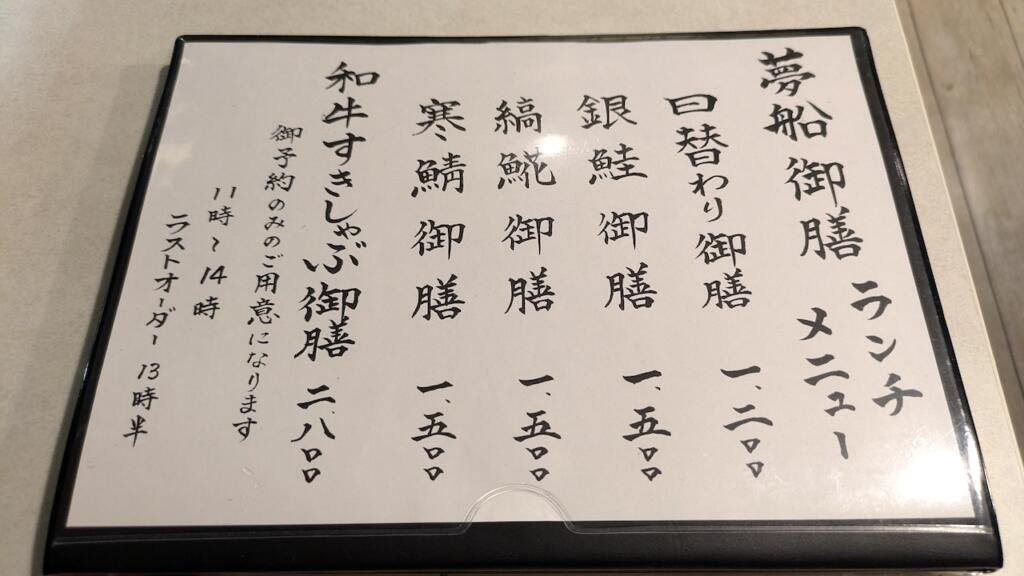 夢船御膳
ランチ
メニュー
日替わり御膳 一、二〇〇
銀鮭御膳 一、五〇〇
縞𩸽御膳 一、五〇〇
寒鯖御膳 一、五〇〇
和牛すきしゃぶ御膳 二、八〇〇
御予約のみのご用意になります
11時〜14時
ラストオーダー 13時半